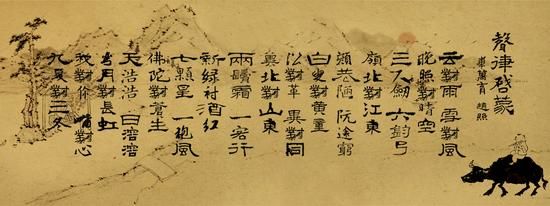 聲律啟蒙
車萬育 趙照
云對雨 雪對風
晚照對晴空
三尺劍 六鈞弓
嶺北對江東
顏巷陋 阮途窮
白叟對黃童
對革 異對同
冀北對山東
兩鬢霜 一客行
新綠村酒紅
七顆星 一袍風
佛陀對蒼生
天浩浩 日溶溶
月對長虹
我對你 對心
九夏對三冬